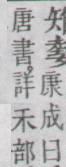 知委康成曰
唐書詳禾部